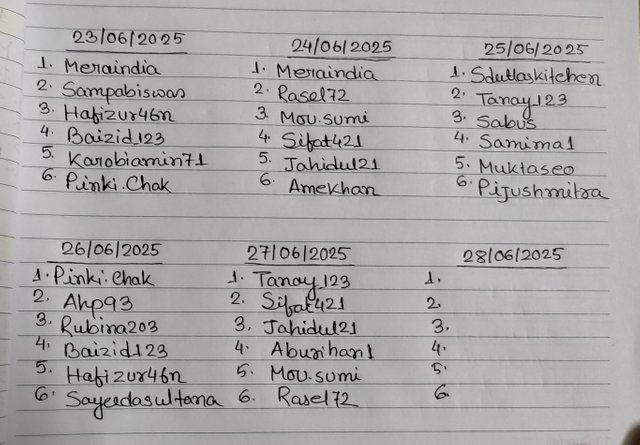 23/06/2025
1. Meraindia
2. Sampabiswas
3. Hafizur46n
4. Baizid_123
5. Karobiamin71
6. Pinki.Chak
24/06/2025
1. Meraindia
2. Rasel72
3. Mou.sumi
4. Sifat421
5. Jahidul21
6. Amekhan
25/06/2025
1. Sduttaskitchen
2. Tanay_123
3. Sabus
4. Samima1
5. Muktaseo
6. Pijushmitra
26/06/2025
1. Pinki.Chak
2. Ahp93
3. Rubina203
4. Baizid123
5. Hafizur46n
6. Sayeedasultana
27/06/2025
1. Tanay_123
2. Sifat421
3. Jahidul21
4. Aburihan1
5. Mou.sumi
6. Rasel72
28/06/2025
1.
2.
3.
4.
5.
6.